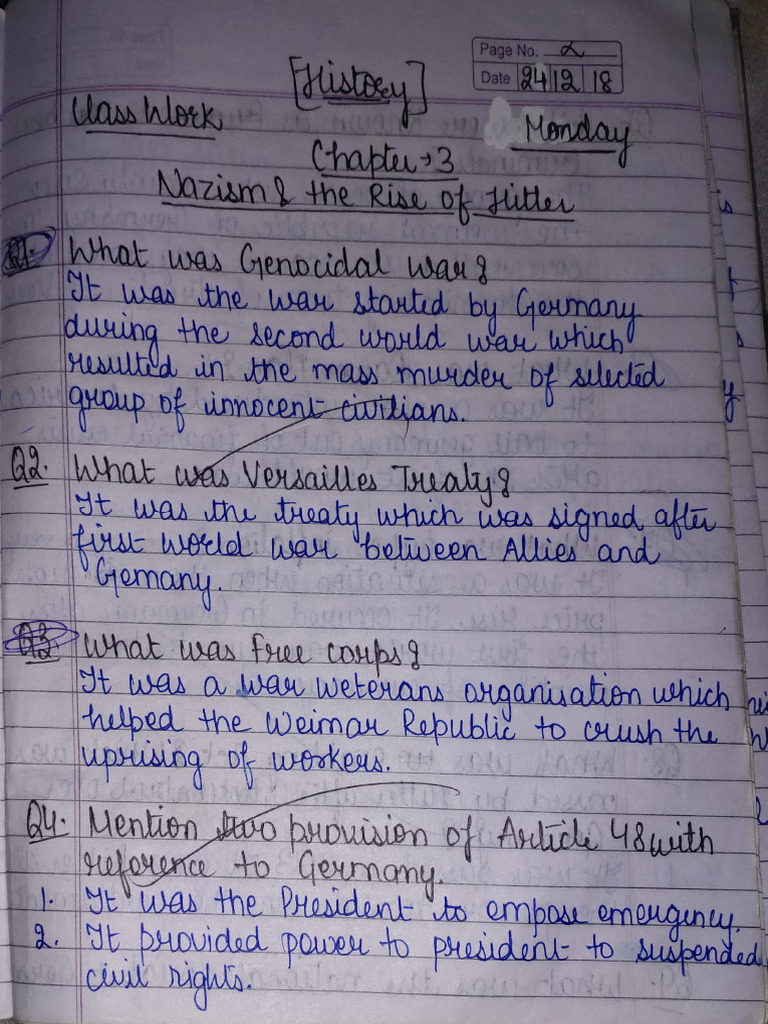 Page No. 2
[History]
Date 24 12 18
Class Work
Monday
Chapter→3
Nazism & the Rise of Hitler
Q1. What was Genocidal war?
It was the war started by Germany
during the second world war which
resulted in the mass murder of selected
group of innocent civilians.
Q2. What was Versailles Treaty?
It was the treaty which was signed after
first world war between Allies and
Gemany.
Q3 What was free corps?
It was a war weterans organisation which
helped the Weimar Republic to crush the
uprising of workers.
Q4. Mention two provision of Article 48 with
reference to Germany.
1. It was the President to empose emergency.
2. It provided power to president to suspended
civil rights.